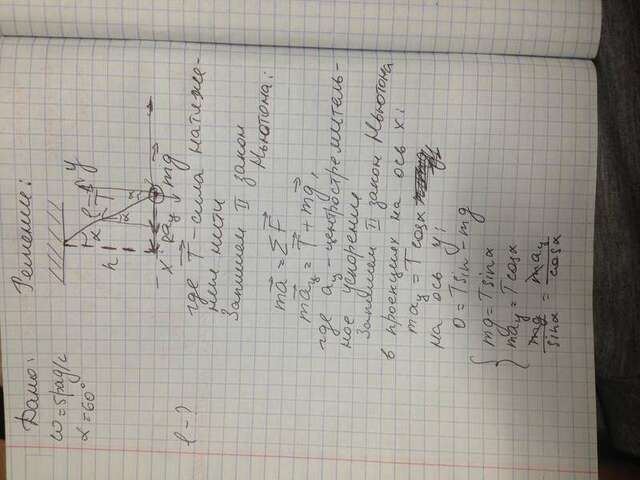 Дано: Решение:
ω = 5 рад/с
α = 60°
l - ?
y
α
l
T
h
α
x
R
aц
mg
где T - сила натяже-
ния нити
Запишем II закон
Ньютона:
ma = ΣF
maц = T + mg,
где aц - центростремитель-
ное ускорение
Запишем II закон Ньютона
в проекциях на ось x:
maц = Tcosα
на ось y:
0 = Tsin - mg
mg = Tsinα
maц = Tcosα
mg/sinα = maц/cosα